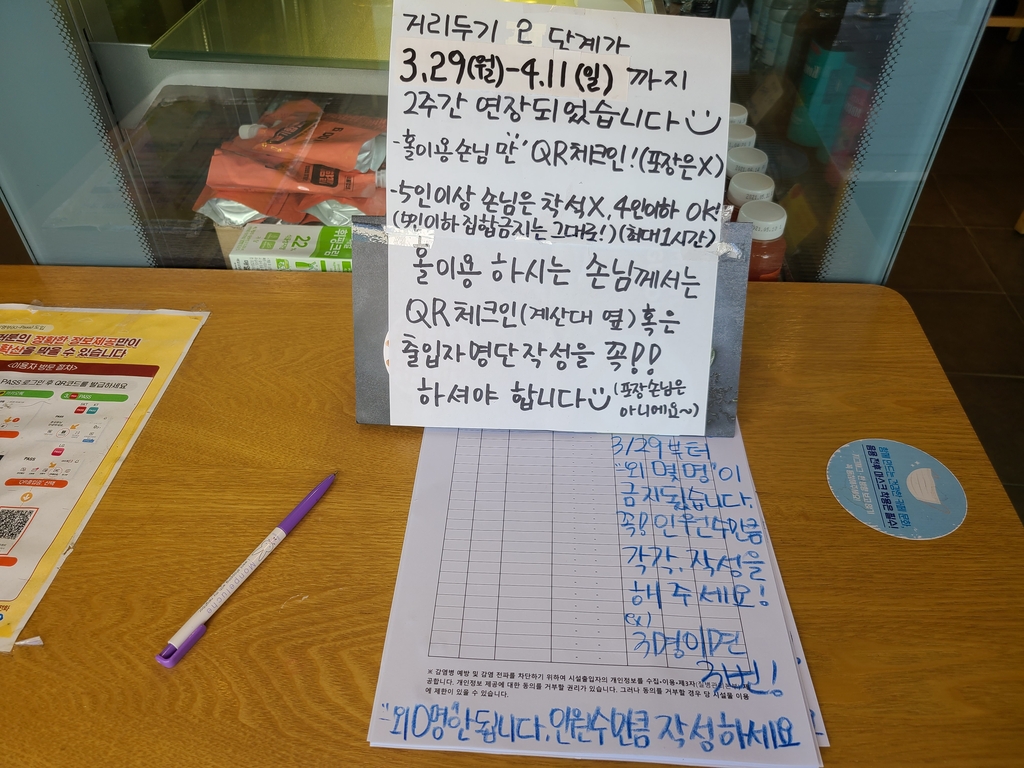 거리두기 2 단계가
3.29(월)-4.11(일) 까지
2주간 연장되었습니다
-홀이용손님 만' QR체크인! (포장은X)
-5인이상 손님은 착석X, 4인이하 OK!
집합금지는 그대로!) (최대1시간)
홀이용 하시는 손님께서는
QR체크인(계산대 옆) 혹은
출입자명단작성을 꼭!!
하셔야 합니다
(포장손님은
아니에요~)
3/29부터
"외 몇명"이
금지됬습니다.
꼭! 인원수만큼
각각, 작성을
해주세요!
ex)
3명이면
3번!
※ 감염병 예방 및 감염 전파를 차단하기 위하여 시설출입자의 개인정보를 수집•이용•제3자
공합니다. 개인정보 제공에 대한 동의를 거부할 권리가 있습니다. 그러나 동의를 거부할 경우 당 시설을 이용
에 제한이 있을 수 있습니다.
"외 0명"안됩니다. 인원수만큼 작성하세요
정확한 정보제공만이
확산을 막을 수 있습니다
<이용자 방문 절차>
PASS 로그인 후 QR코드를 발급하세요
PASS
PASS